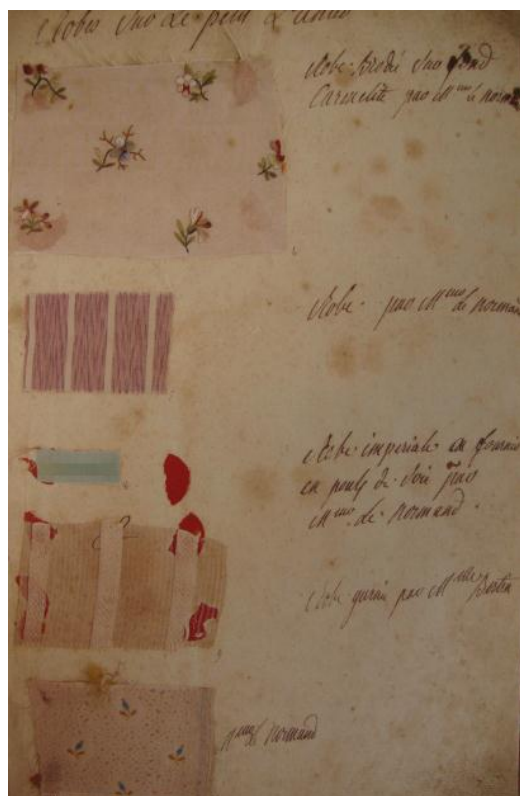 Robes Sur Le petit
Robe Brodé Sur fond
Carmelite par Mme le norma
Robe par Mme le normand
Robe imperiale en fournie
en pouls de Soie par
Mme Le Normand.
Robe garnie par Mlle Bertin
Mme le Normand